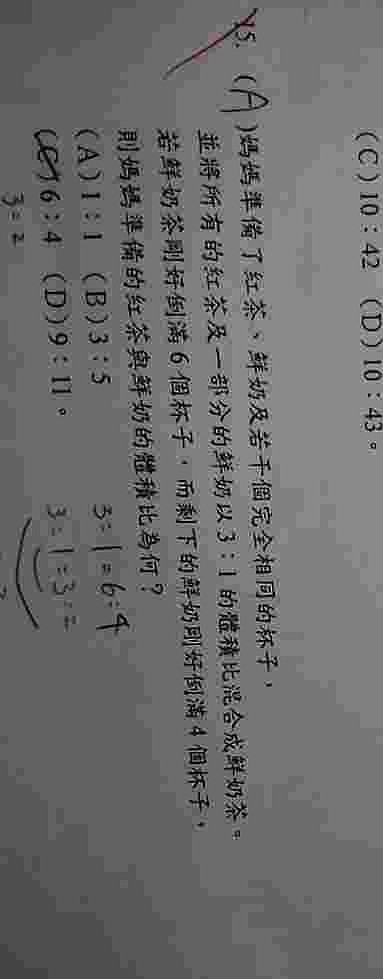 (C)10:42 (D)10:43。
15. (A)媽媽準備了紅茶、鮮奶及若干個完全相同的杯子,
並將所有的紅茶及一部分的鮮奶以3:1的體積比混合成鮮奶茶。
若鮮奶茶剛好倒滿6個杯子,而剩下的鮮奶剛好倒滿4個杯子,
則媽媽準備的紅茶與鮮奶的體積比為何?
(A)1:1 (B)3:5 3:1=6:4
(C)6:4 (D)9:11。 3:1=3:2
3:2